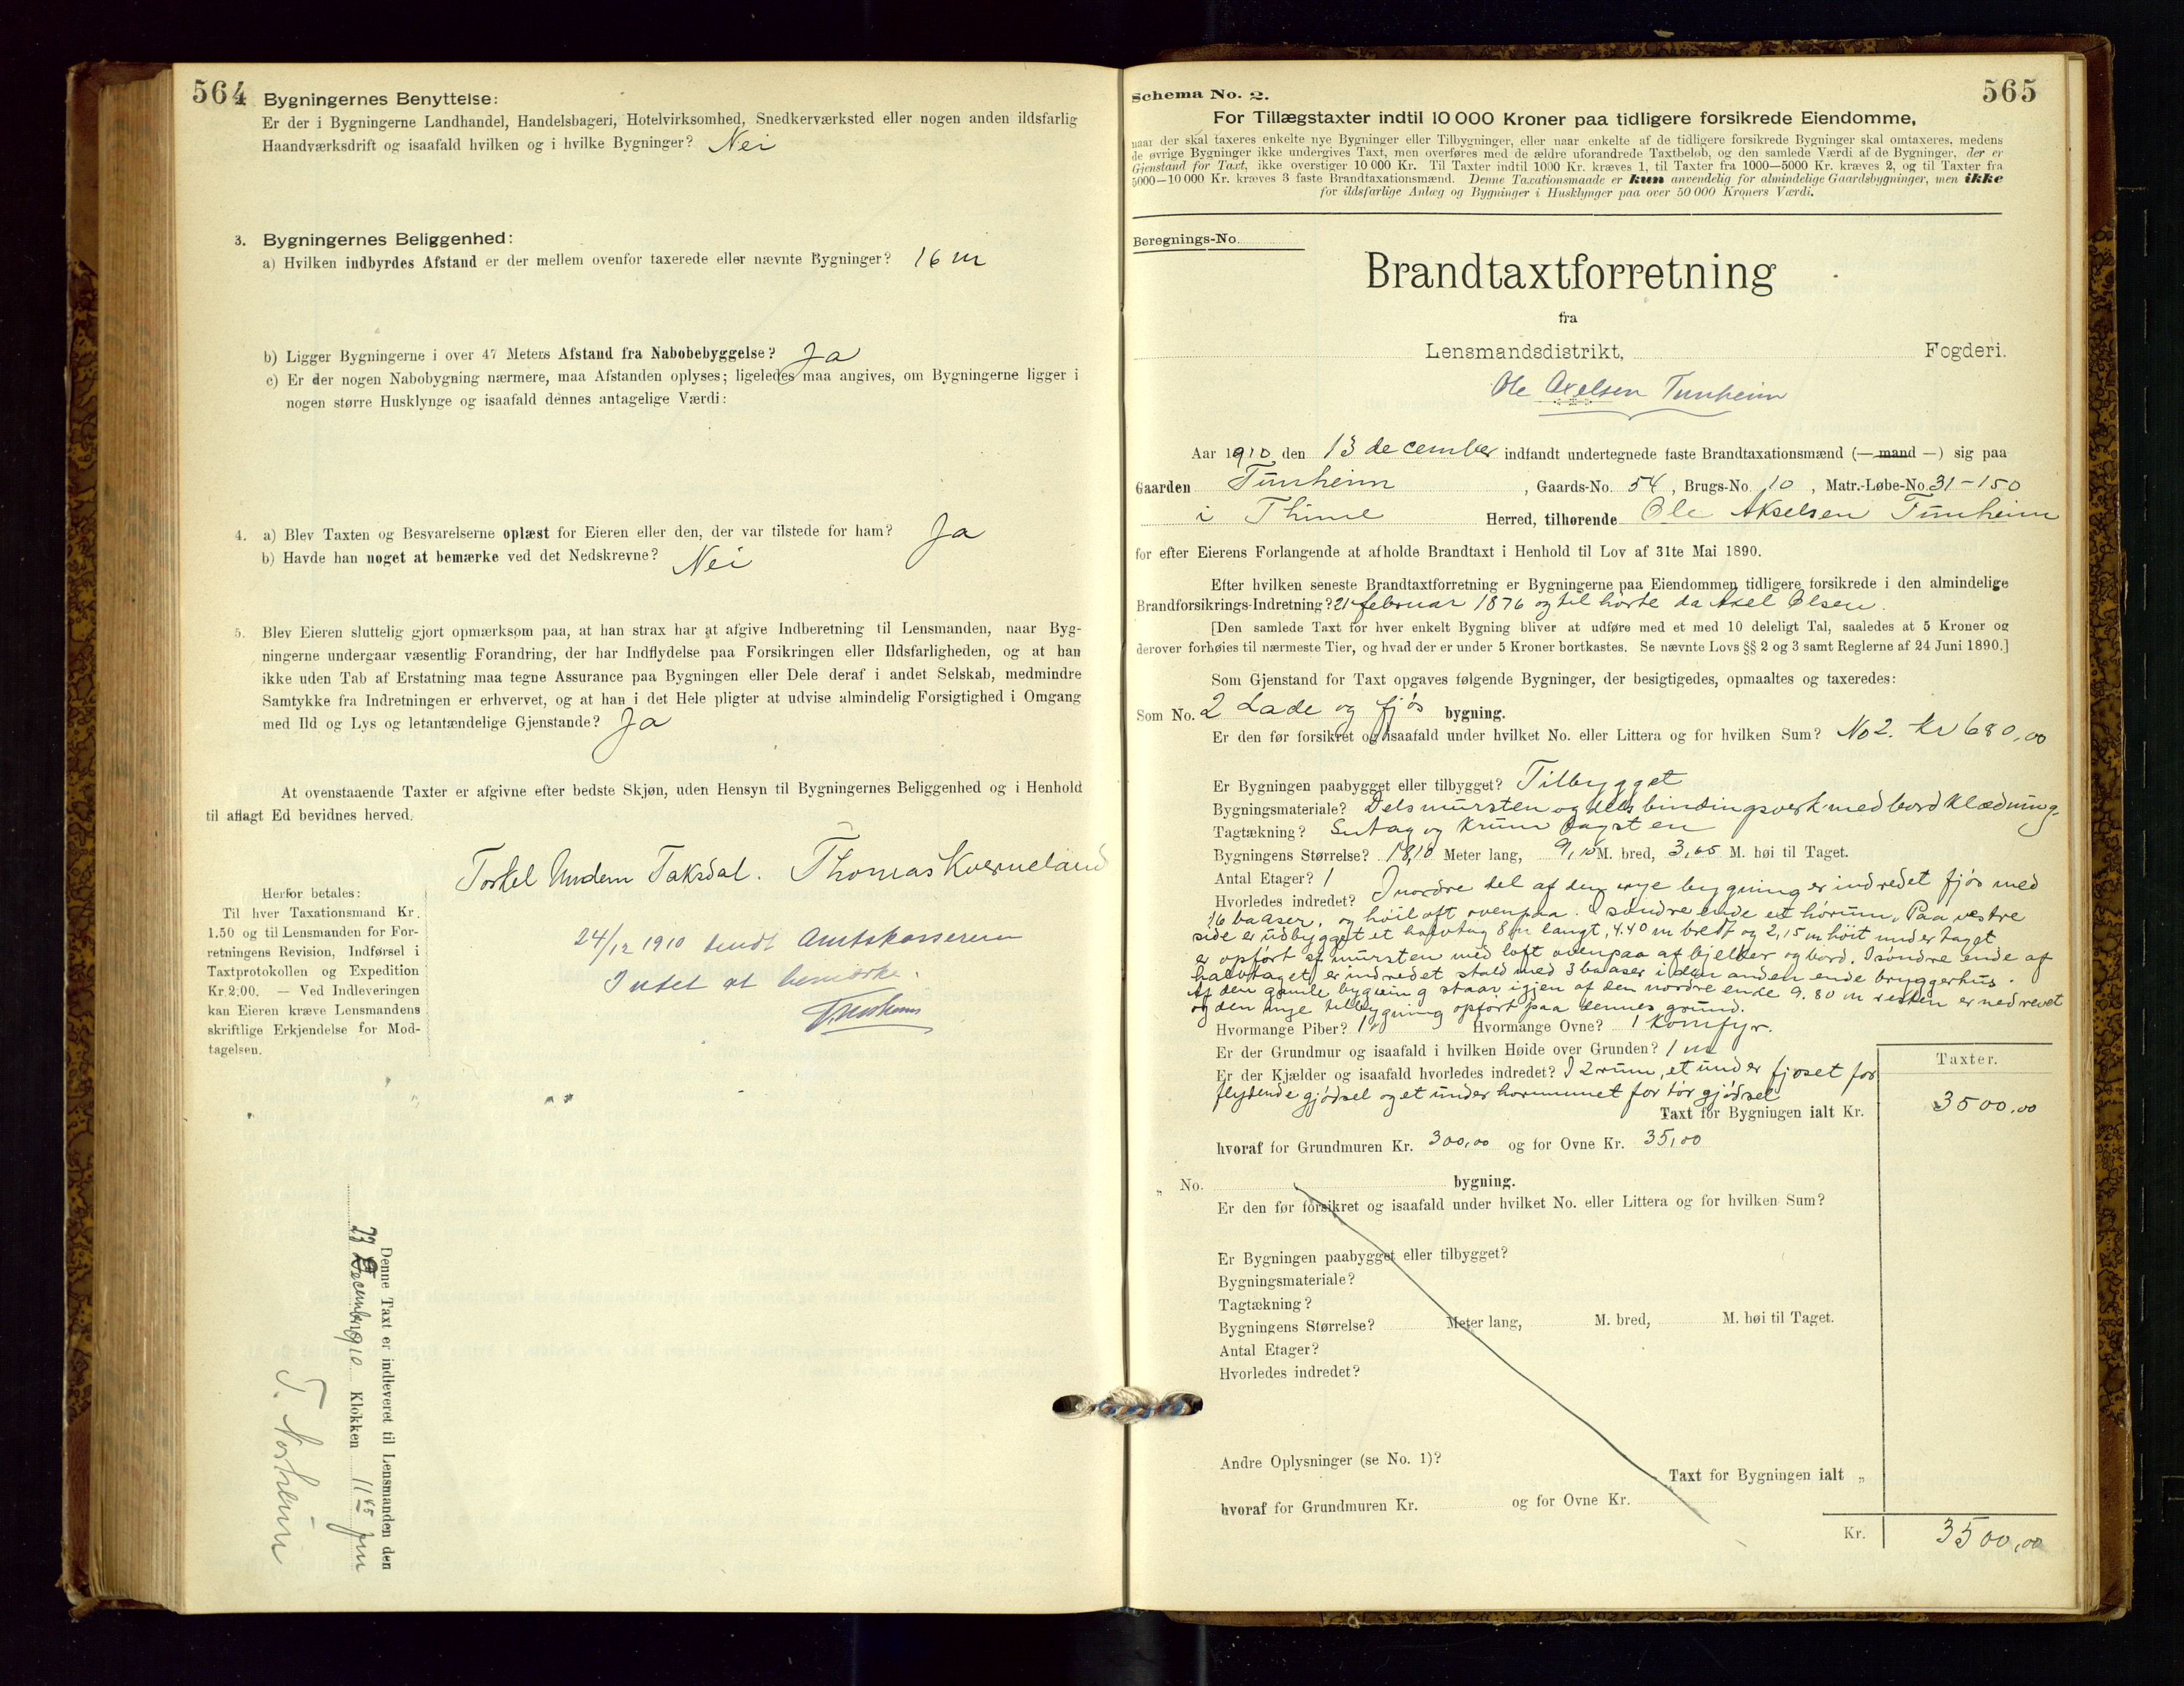 564
Bygningernes Benyttelse:
Er der i Bygningerne Landhandel, Handelsbageri, Hotelvirksomhed, Snedkerværksted eller nogen anden ildsfarlig
Haandværksdrift og isaafald hvilken og i hvilke Bygninger? Nei
3. Bygningernes Beliggenhed:
a) Hvilken indbyrdes Afstand er der mellem ovenfor taxerede eller nævnte Bygninger? 16 m
b) Ligger Bygningerne i over 47 Meters Afstand fra Nabobebyggelse? Ja
c) Er der nogen Nabobygning nærmere, maa Afstanden oplyses; ligeledes maa angives, om Bygningerne ligger i
nogen større Husklynge og isaafald dennes antagelige Værdi:
4. a) Blev Taxten og Besvarelserne oplæst for Eieren eller den, der var tilstede for ham? Ja
b) Havde han noget at bemærke ved det Nedskrevne? Nei
5. Blev Eieren sluttelig gjort opmærksom paa, at han strax har at afgive Indberetning til Lensmanden, naar Byg-
ningerne undergaar væsentlig Forandring, der har Indflydelse paa Forsikringen eller Ildsfarligheden, og at han
ikke uden Tab af Erstatning maa tegne Assurance paa Bygningen eller Dele deraf i andet Selskab, medmindre
Samtykke fra Indretningen er erhvervet, og at han i det Hele pligter at udvise almindelig Forsigtighed i Omgang
med Ild og Lys og letantændelige Gjenstande? Ja
At ovenstaaende Taxter er afgivne efter bedste Skjøn, uden Hensyn til Bygningernes Beliggenhed og i Henhold
til aflagt Ed bevidnes herved.
Torkel Undem Taksdal. Thomas Kverneland
Herfor betales:
Til hver Taxationsmand Kr.
1.50 og til Lensmanden for For-
retningens Revision, Indførsel i
Taxtprotokollen og Expedition
Kr. 2.00. — Ved Indleveringen
kan Eieren kræve Lensmandens
skriftlige Erkjendelse for Mod-
tagelsen.
24/12 1910 sendt Amtskassereren
Intet at bemærke.
Denne Taxt er indleveret til Lensmanden den
23 December 1910 Klokken 11 45 fm
T. Norheim
565
Schema No. 2.
For Tillægstaxter indtil 10 000 Kroner paa tidligere forsikrede Eiendomme,
naar der skal taxeres enkelte nye Bygninger eller Tilbygninger, eller naar enkelte af de tidligere forsikrede Bygninger skal omtaxeres, medens
de øvrige Bygninger ikke undergives Taxt, men overføres med de ældre uforandrede Taxtbeløb, og den samlede Værdi af de Bygninger, der er
Gjenstand for Taxt, ikke overstiger 10 000 Kr. Til Taxter indtil 1000 Kr. kræves 1, til Taxter fra 1000—5000 Kr. kræves 2, og til Taxter fra
5000—10 000 Kr. kræves 3 faste Brandtaxationsmænd. Denne Taxationsmaade er kun anvendelig for almindelige Gaardsbygninger, men ikke
for ildsfarlige Anlæg og Bygninger i Husklynger paa over 50 000 Kroners Værdi.
Beregnings-No.
Brandtaxtforretning
fra
Lensmandsdistrikt, Fogderi.
Ole Axelsen Tunheim
Aar 1910 den 13 december indfandt undertegnede faste Brandtaxationsmænd (— mand —) sig paa
Gaarden Tunheim, Gaards-No. 54, Brugs-No. 10, Matr.-Løbe-No. 31-150
i Thime Herred, tilhørende Ole Akselsen Tunheim
for efter Eierens Forlangende at afholde Brandtaxt i Henhold til Lov af 31te Mai 1890.
Efter hvilken seneste Brandtaxtforretning er Bygningerne paa Eiendommen tidligere forsikrede i den almindelige
Brandforsikrings-Indretning? 21 februar 1876 og til hørte da Axel Olsen.
[Den samlede Taxt for hver enkelt Bygning bliver at udføre med et med 10 deleligt Tal, saaledes at 5 Kroner og
derover forhøies til nærmeste Tier, og hvad der er under 5 Kroner bortkastes. Se nævnte Lovs §§ 2 og 3 samt Reglerne af 24 Juni 1890.]
Som Gjenstand for Taxt opgaves følgende Bygninger, der besigtigedes, opmaaltes og taxeredes:
Som No. 2 Lade og fjøs bygning.
Er den før forsikret og isaafald under hvilket No. eller Littera og for hvilken Sum? No 2. kr 680,00
Er Bygningen paabygget eller tilbygget? Tilbygget
Bygningsmateriale? Dels mursten og dels bindingsverk med bordklædning.
Tagtækning? og krum tagsten
Bygningens Størrelse? 18,10 Meter lang, 9,10 M. bred, 3,65 M. høi til Taget.
Antal Etager? 1
Hvorledes indredet? I nordre del af den nye bygning er indredet fjøs med
16 baaser, og høiloft ovenpaa. I søndre ende et hørum. Paa vestre
side er udbygget et halvtag 8 m langt, 4.40 m bredt og 2,15 m høit under taget
er opført af mursten med loft ovenpaa af bjelker og bord. I søndre ende af
halvtaget er indredet stald med 3 baaser i den anden ende bryggerhus.
Af den gamle bygning staar igjen af den nordre ende 9.80 m resten er nedrevet
og den nye tilbygning opført paa dennes grund.
Hvormange Piber? 1 Hvormange Ovne? 1 Komfyr.
Er der Grundmur og isaafald i hvilken Høide over Grunden? 1 m
Er der Kjælder og isaafald hvorledes indredet? I 2 rum, et under fjøset for
flydende gjødsel og et under hørummet for tør gjødsel
Taxter.
Taxt for Bygningen ialt Kr. 3500,00
hvoraf for Grundmuren Kr. 300,00 og for Ovne Kr. 35,00
„ No. bygning.
Er den før forsikret og isaafald under hvilket No. eller Littera og for hvilken Sum?
Er Bygningen paabygget eller tilbygget?
Bygningsmateriale?
Tagtækning?
Bygningens Størrelse? Meter lang, M. bred, M. høi til Taget.
Antal Etager?
Hvorledes indredet?
Andre Oplysninger (se No. 1)?
Taxt for Bygningen ialt „
hvoraf for Grundmuren Kr. og for Ovne Kr.
Kr. 3500,00